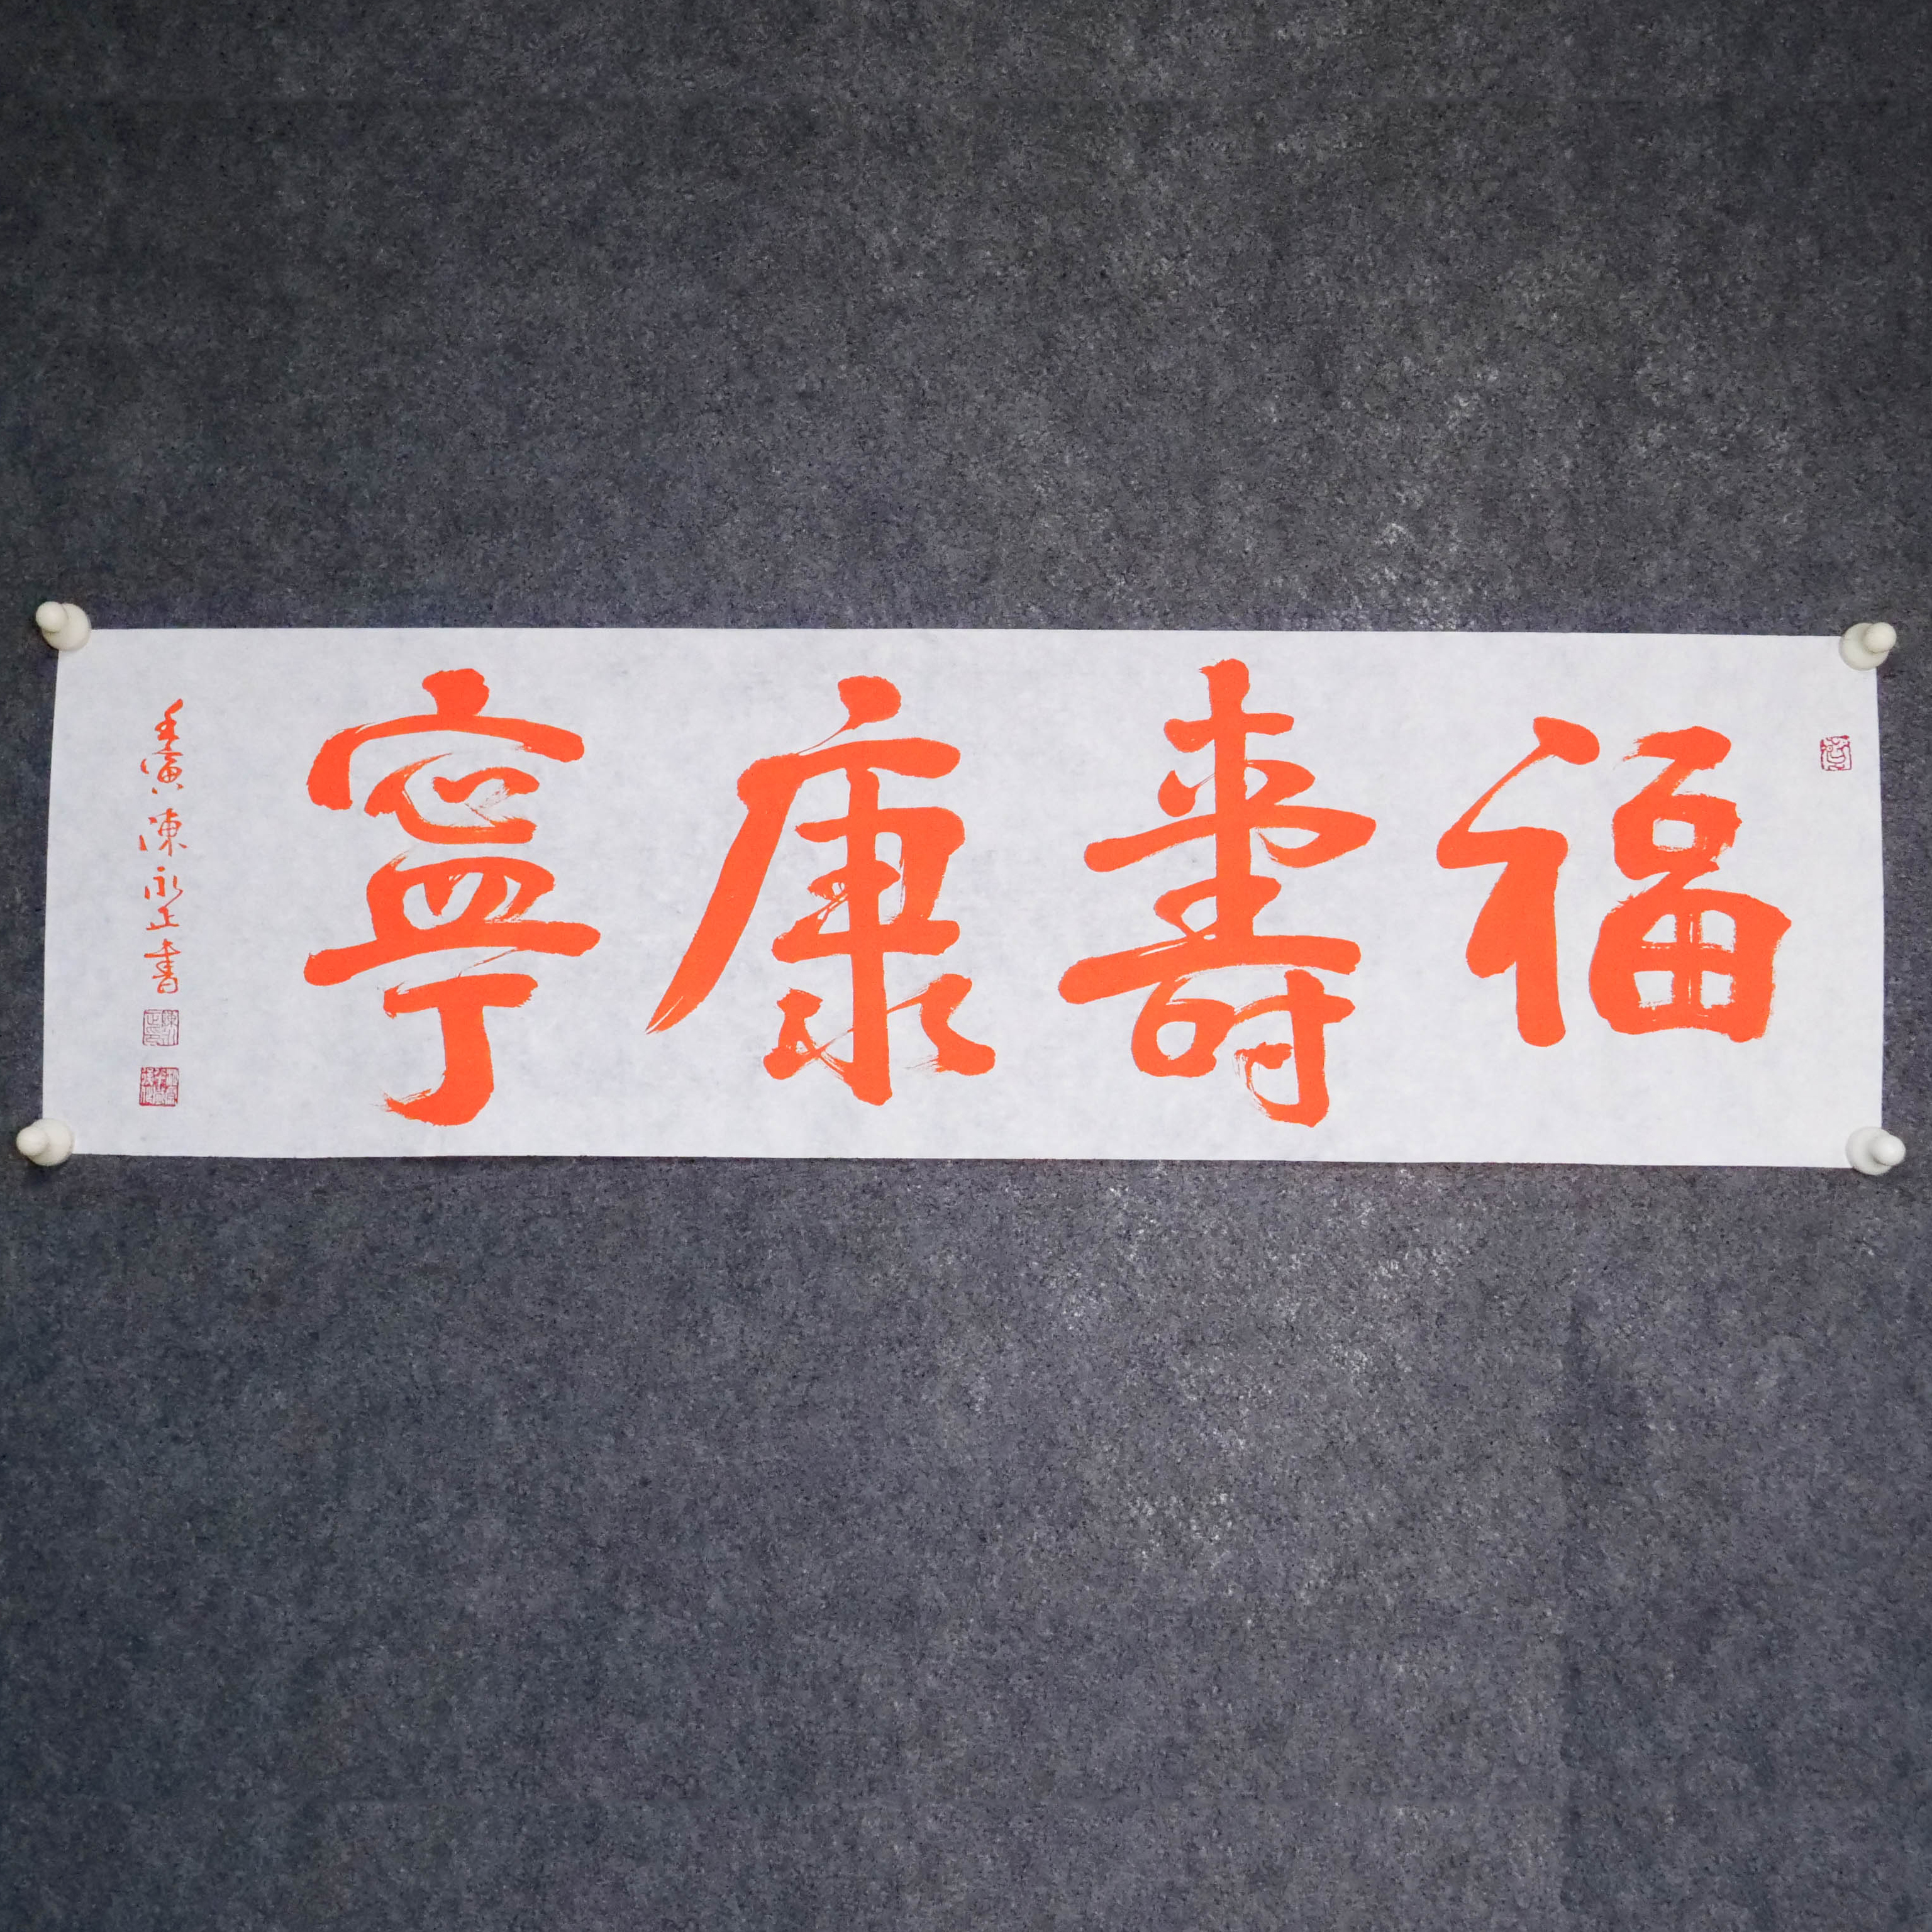 福壽康寧
壬寅陳永正書